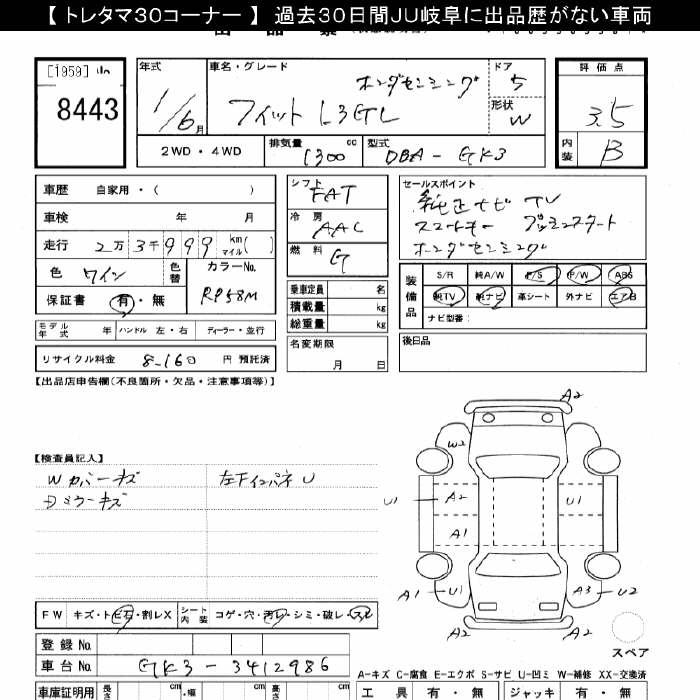 【 トレタマ30コーナー 】 過去30日間JU岐阜に出品歴がない車両
[1959] 山
8443
年式 車名・グレード ドア 評価点
ホンダセンシング 5
1/6月 フィット L3GL 形状 W 3.5
2WD・4WD 排気量 1300 cc 型式 DBA-GK3 内装 B
車歴 自家用・( )
シフト FAT
セールスポイント
車検 年 月
冷房 AAC
純正ナビ TV
スマートキー プッシュスタート
ホンダセンシング
走行 2万3千999 km マイル( )
燃料 G
色 ワイン 色替 カラーNo. RP58M
保証書 有・無
乗車定員 名
積載量 kg
総重量 kg
装備品 S/R 純A/W P/S P/W ABS
純TV 純ナビ 革シート 外ナビ エアB
ナビ型番:
モデル年式 年 ハンドル 左・右 ディーラー・並行
名変期限 月 日
後日品
リサイクル料金 8,160 円 預託済
【出品店申告欄(不良箇所・欠品・注意事項等)】
【検査員記入】
Wカバーキズ 左下インパネU
Dミラーキズ
A2
W2
U1 A2 U1
A1
A1 U1 A3 U2
A2 A2
スペア
FW キズ・トビ石・割レX シート内装 コゲ・穴・汚レ・シミ・破レ・スレ
登録No.
車台No. GK3-3412986
A-キズ C-腐食 E-エクボ S-サビ U-凹ミ W-補修 XX-交換済
車庫証明用 長さ cm ・幅 cm 高さ cm
工具 有・無 ジャッキ 有・無